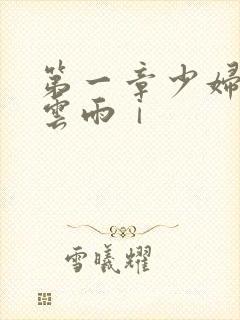 第一章少婦
雲雨1
雪曦耀